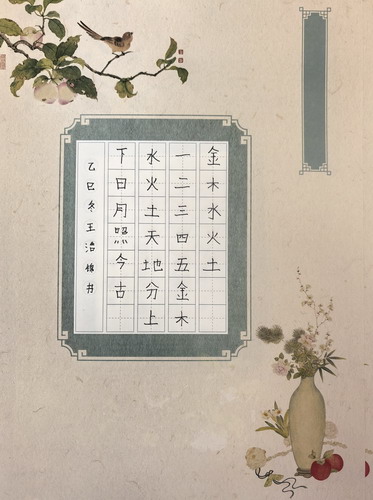 金木水火土
一二三四五金木
水火土天地分上
下日月照今古
乙巳冬王治
书